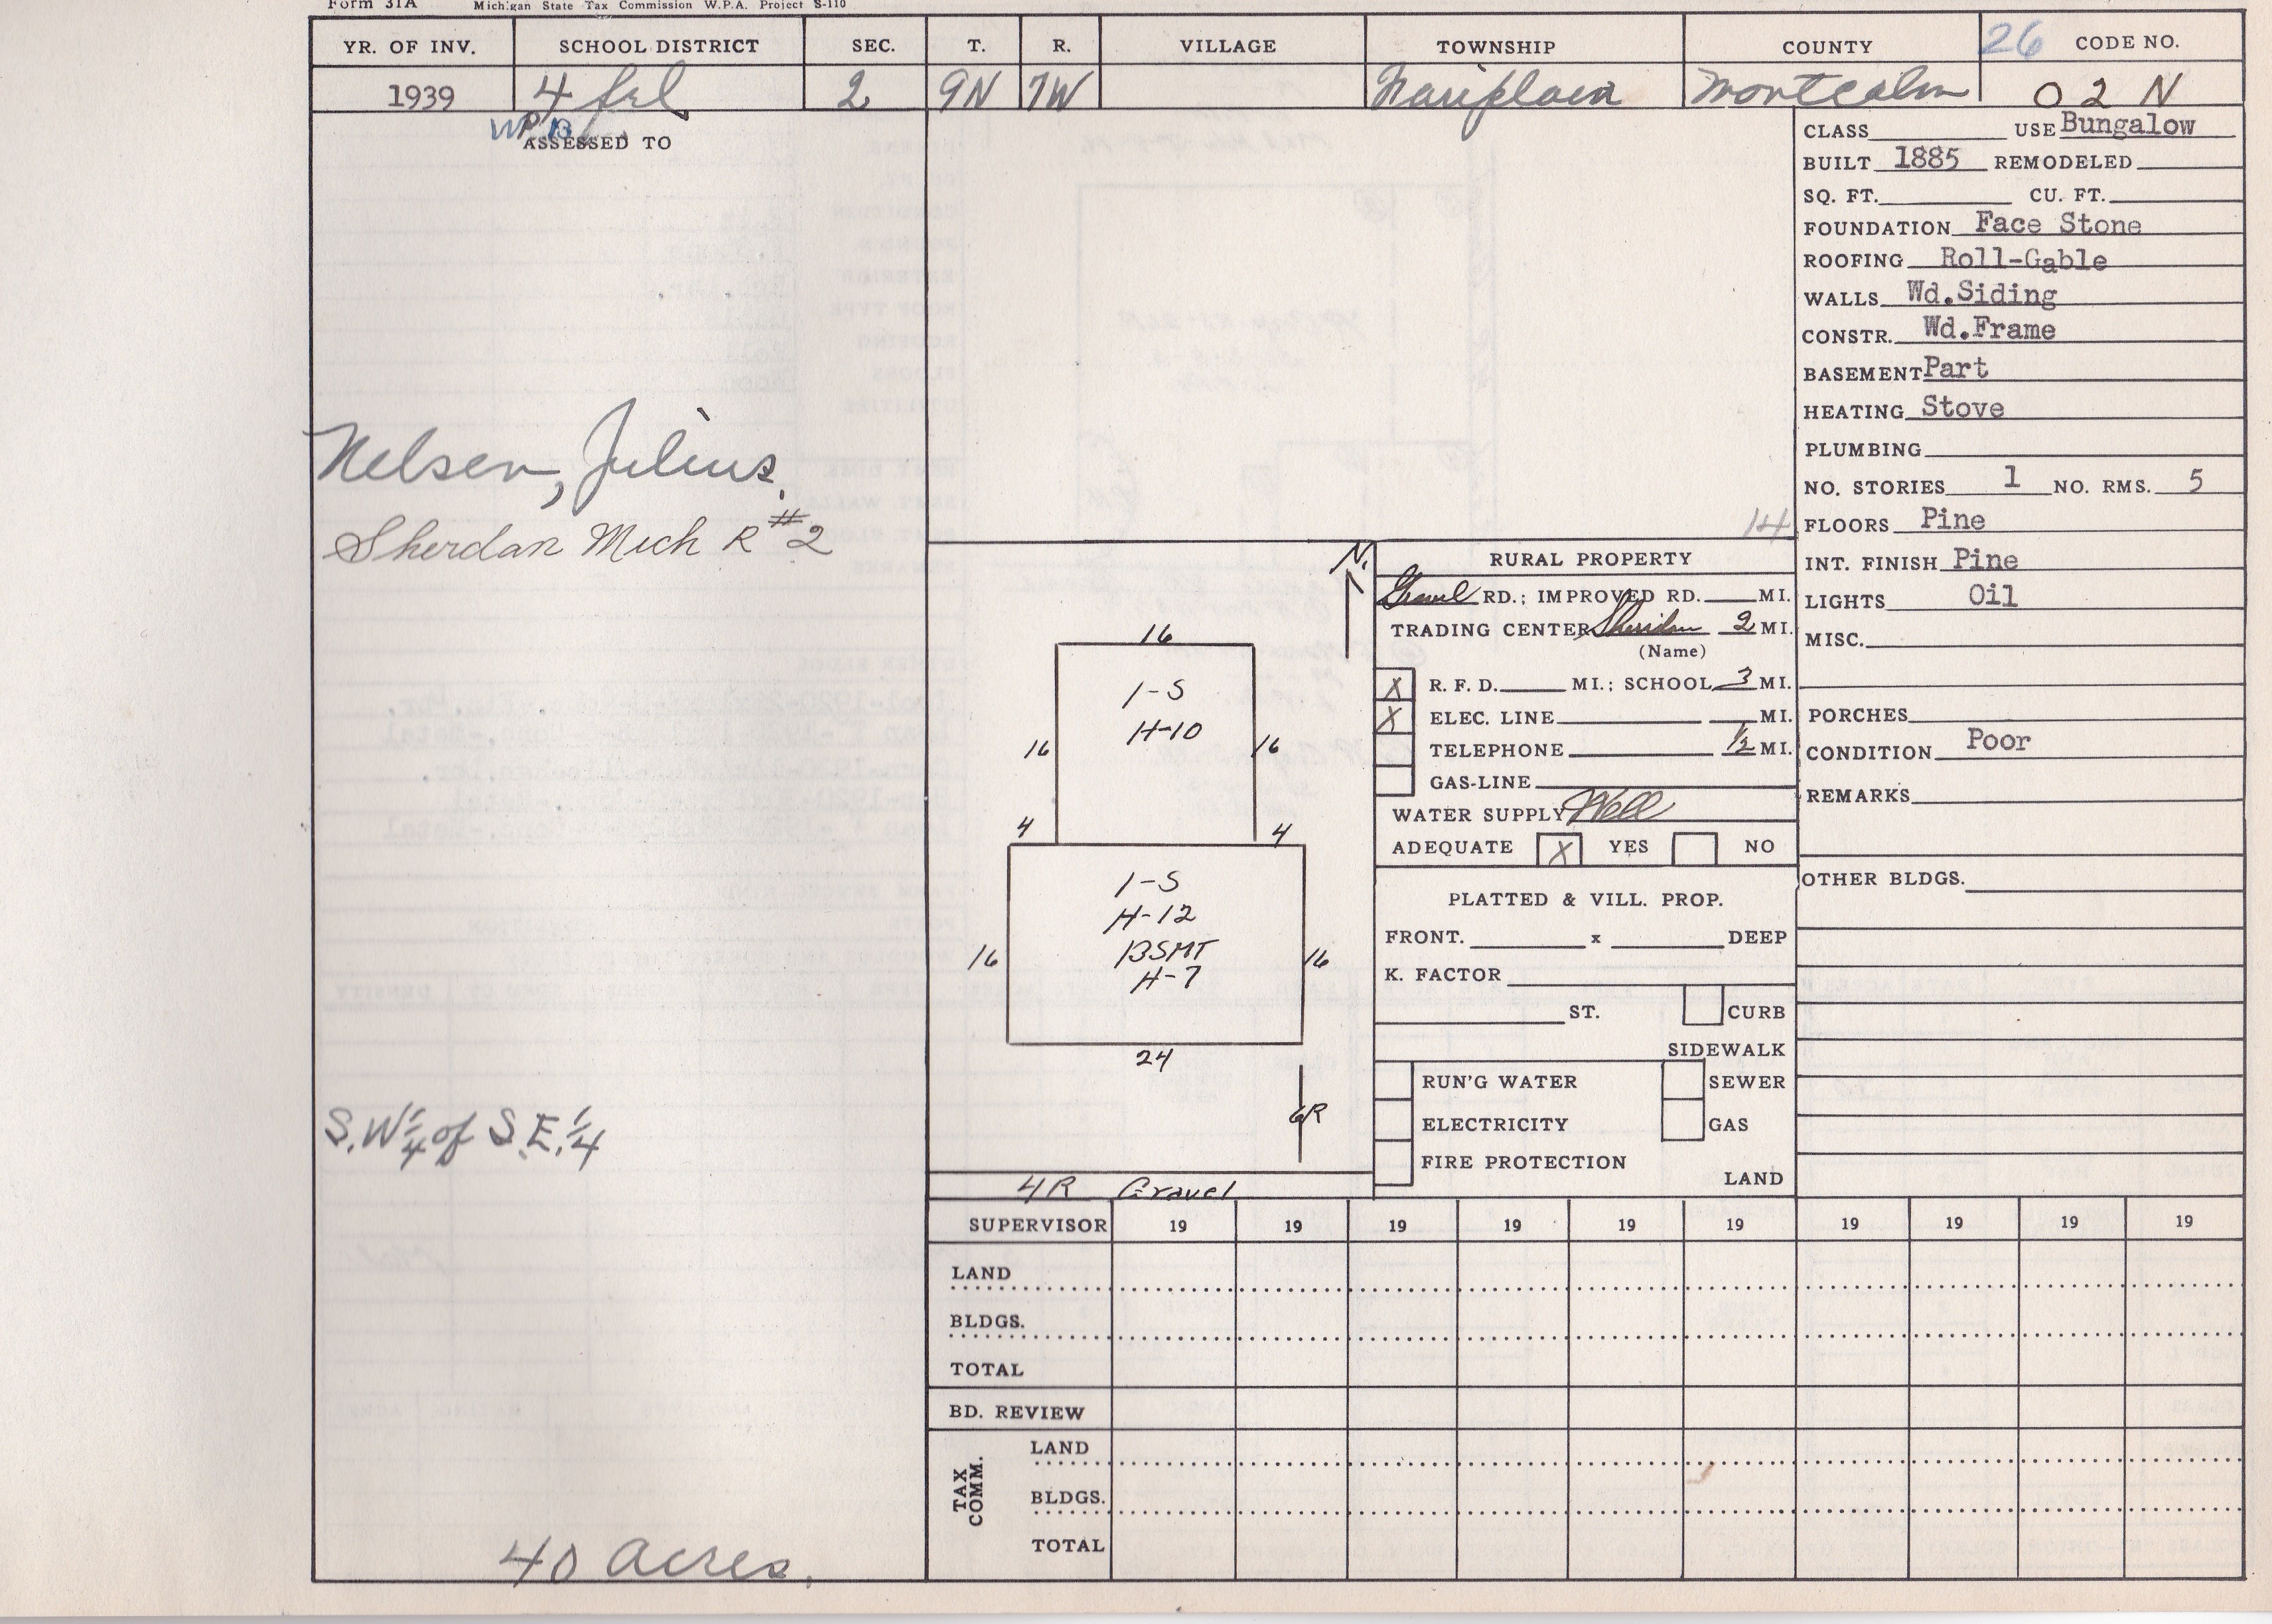 Form 31A Michigan State Tax Commission W.P.A. Project S-110
YR. OF INV. SCHOOL DISTRICT SEC. T. R. VILLAGE TOWNSHIP COUNTY 26 CODE NO.
1939 4 fel 2 9N 7W Fairplain Montcalm 02 N
ASSESSED TO
Nelsen, Julius.
Sherdan Mich R #2
S.W 1/4 of S.E. 1/4
40 acres.
N.
16
1-S
H-10
16 16
4 4
1-S
H-12
BSMT
H-7
16 16
24
6R
4R Gravel
14
RURAL PROPERTY
Gravel RD.; IMPROVED RD. MI.
TRADING CENTER Sheridan 2 MI.
(Name)
X R. F. D. MI.; SCHOOL 3 MI.
X ELEC. LINE MI.
TELEPHONE 1/2 MI.
GAS-LINE
WATER SUPPLY Well
ADEQUATE X YES NO
PLATTED & VILL. PROP.
FRONT. x DEEP
K. FACTOR
ST. CURB
SIDEWALK
RUN'G WATER SEWER
ELECTRICITY GAS
FIRE PROTECTION
LAND
CLASS USE Bungalow
BUILT 1885 REMODELED
SQ. FT. CU. FT.
FOUNDATION Face Stone
ROOFING Roll-Gable
WALLS Wd.Siding
CONSTR. Wd.Frame
BASEMENT Part
HEATING Stove
PLUMBING
NO. STORIES 1 NO. RMS. 5
FLOORS Pine
INT. FINISH Pine
LIGHTS Oil
MISC.
PORCHES
CONDITION Poor
REMARKS
OTHER BLDGS.
SUPERVISOR 19 19 19 19 19 19 19 19 19 19
LAND
BLDGS.
TOTAL
BD. REVIEW
TAX COMM.
LAND
BLDGS.
TOTAL